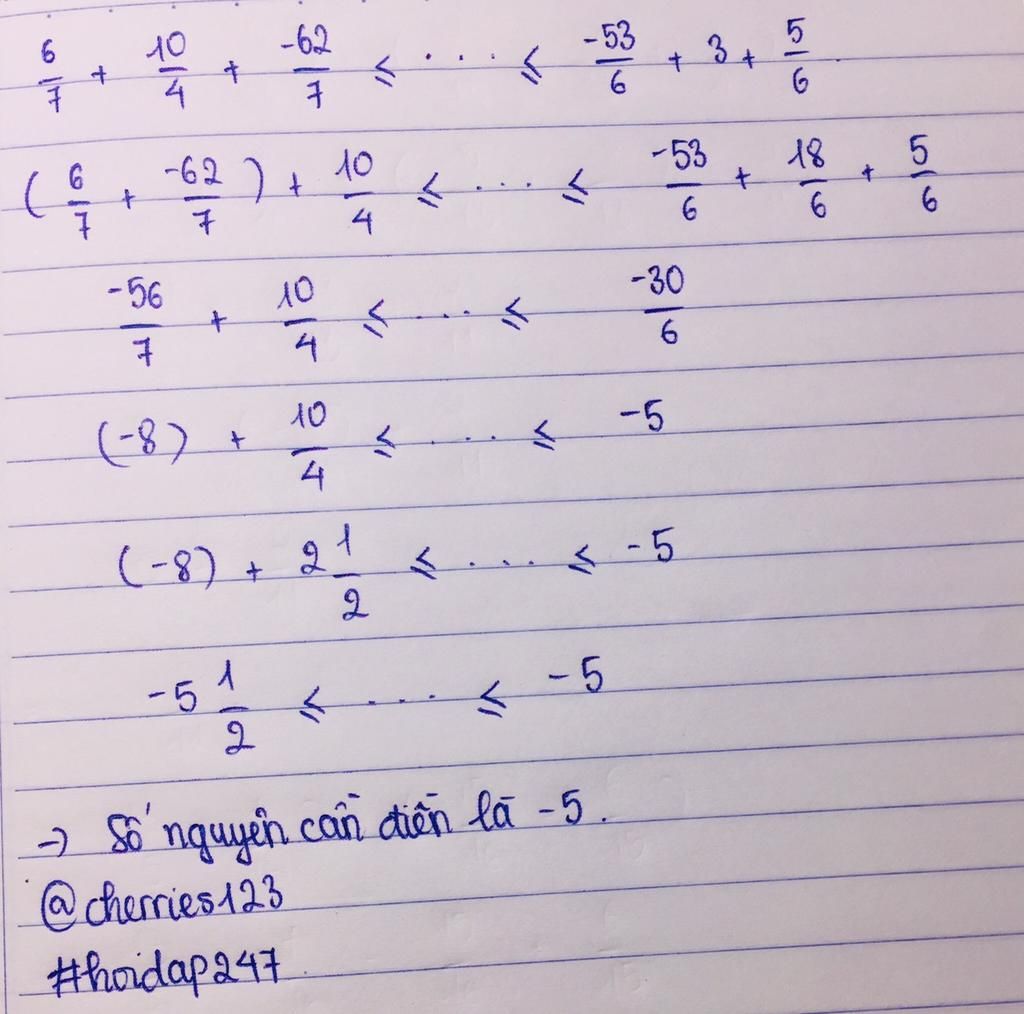 6/7 + 10/4 + -62/7 ≤ .... ≤ -53/6 + 3 + 5/6
(6/7 + -62/7) + 10/4 ≤ .... ≤ -53/6 + 18/6 + 5/6
-56/7 + 10/4 ≤ .... ≤ -30/6
(-8) + 10/4 ≤ .... ≤ -5
(-8) + 2 1/2 ≤ .... ≤ -5
-5 1/2 ≤ .... ≤ -5
→ Số nguyên cần điền là -5.
@cherries123
#hoidap247